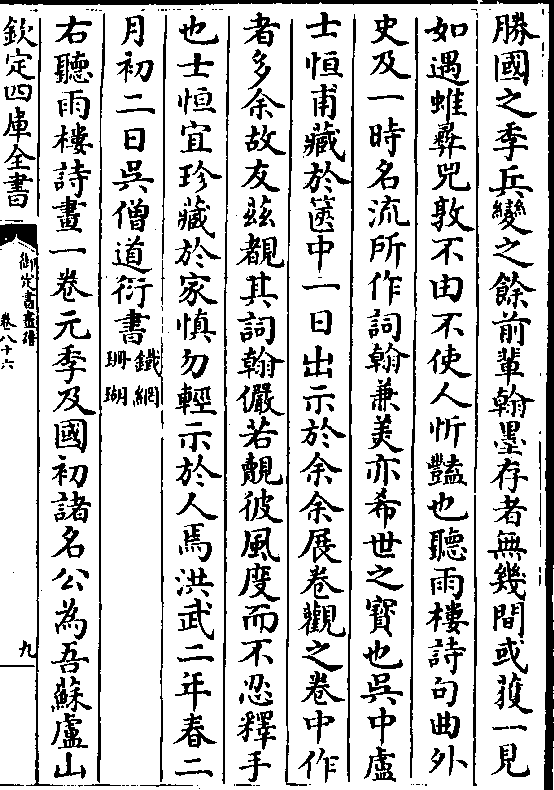 勝國之季兵變之餘前輩翰墨存者無幾間或䕶一見
如遇蜼彞兕敦不由不使人忻豔也聽雨樓詩句曲外
史及一時名流所作詞翰兼美亦希世之寳也吳中盧
士恒甫藏於箧中一日出示於余余展卷觀之卷中作
者多余故友兹覩其詞翰儼若覿彼風度而不忍釋手
也士恒宜珍藏於家慎勿輕示於人焉洪武二年春二
月初二日吳僧道衍書鐵網
珊瑚
右聽雨樓詩畫一卷元季及國初諸名公為吾蘇盧山
欽定四庫全書
御定書畫譜
卷八十六
九